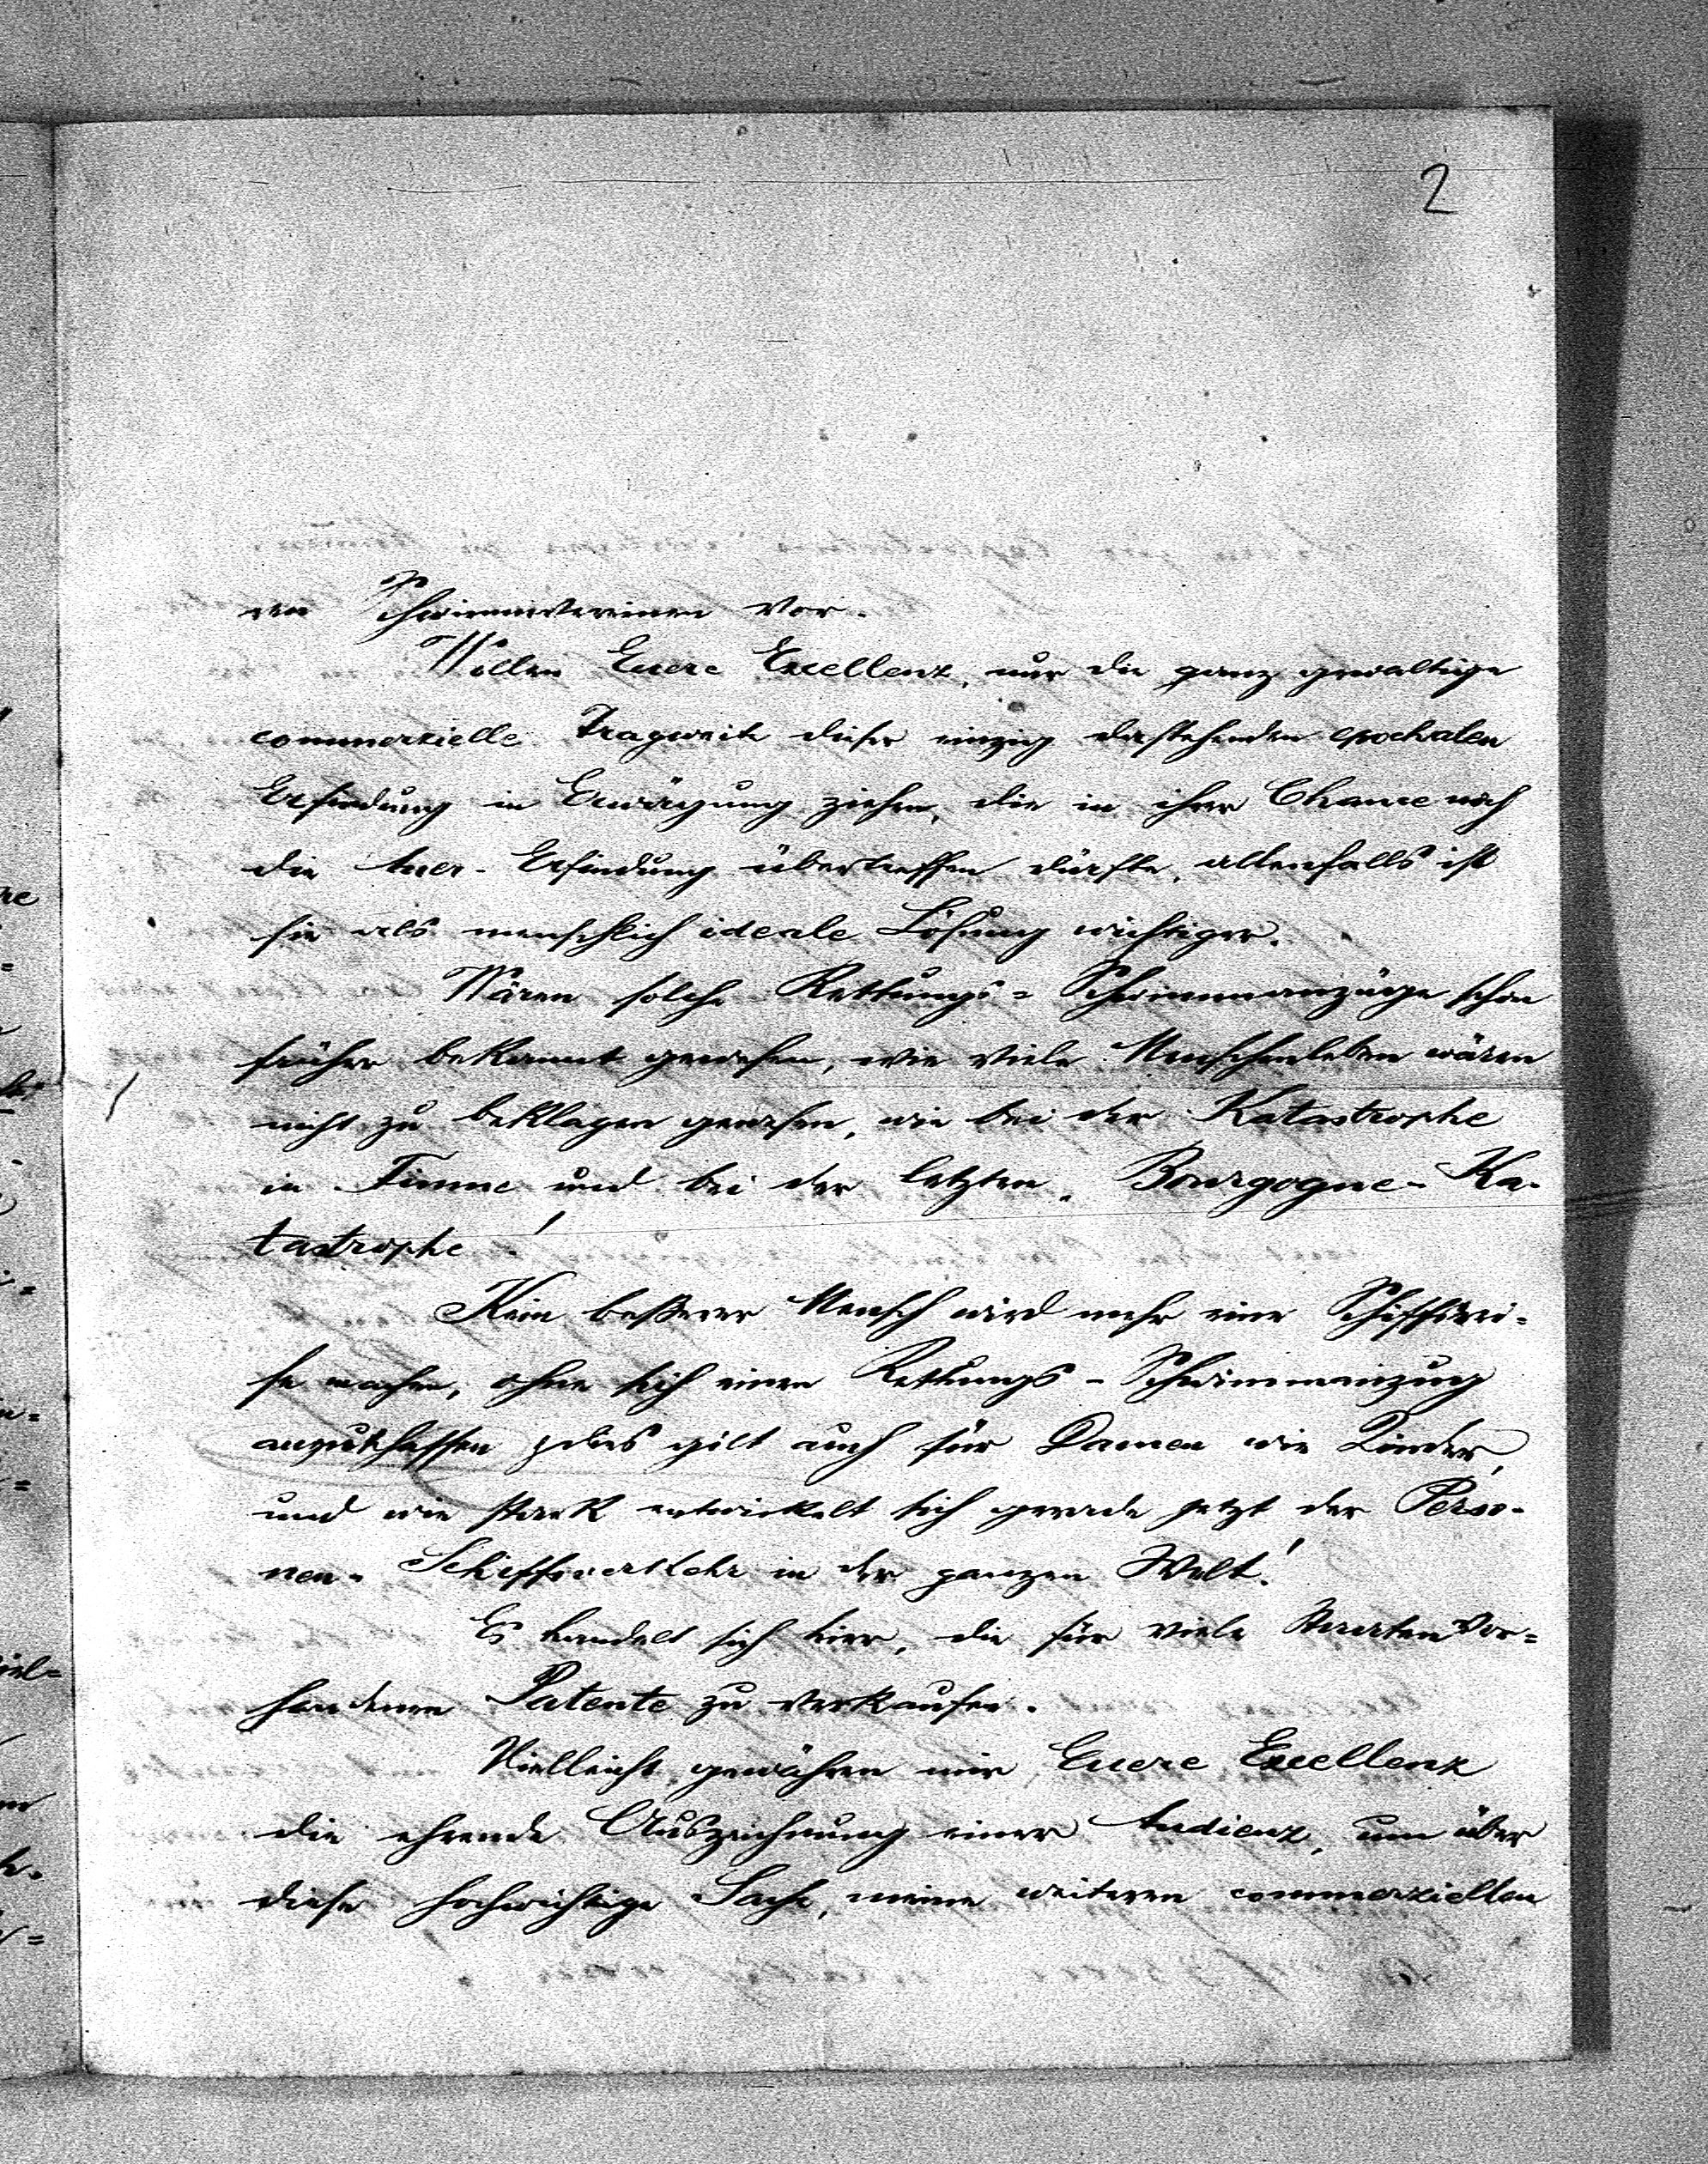 2
ren Schwimmvereinen vor.
Wollen Euere Excellenz, nur die ganz gewaltige
commerzielle Tragweite dieser einzig dastehenden epochalen
Erfindung in Erwägung ziehen, die in ihrer Chance noch
die Auer-Erfindung übertreffen dürfte, allenfalls ist
sie als menschlich ideale Lösung wichtiger.
Wären solche Rettungs=Schwimmanzüge schon
früher bekannt gewesen, wie viele Menschenleben wären
nicht zu beklagen gewesen, wie bei der Katastrophe
in Fiume und bei der letzten, Bourgogne-Ka-
tastrophe!
Kein besserer Mensch wird mehr eine Schiffsrei=
se machen, ohne sich einen Rettungs-Schwimmanzug
anzuschaffen, das gilt auch für Damen wie Kinder,
und wie stark entwickelt sich gerade jetzt der Perso-
nen-Schiffsverkehr in der ganzen Welt!
Es handelt sich hier, die für viele Staaten vor=
handenen Patente zu verkaufen.
Vielleicht gewähren mir Euere Excellenz
die ehrende Auszeichnung einer Audienz, um über
diese hochwichtige Sache, meine weiteren commerziellen